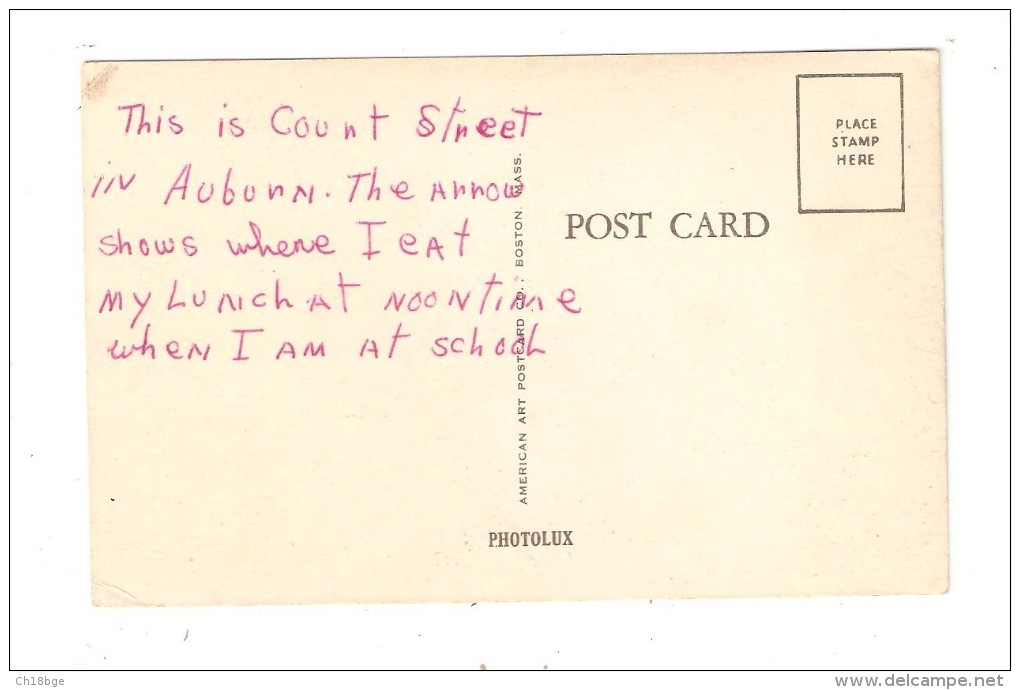 This is Court Street
in Auburn. The arrow
shows where I eat
my Lunch at noontime
when I am at school
PLACE
STAMP
HERE
POST CARD
AMERICAN ART POSTCARD CO., BOSTON. MASS.
PHOTOLUX
Ch18bge
www.delcampe.net